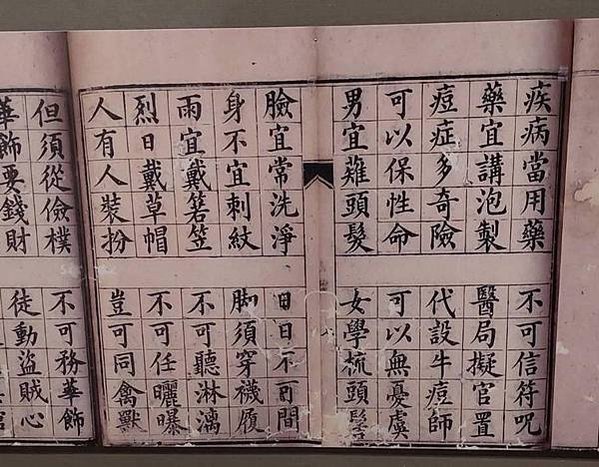 疾病當用藥
不可信符呪
藥宜講泡製
醫局擬官置
痘症多奇險
代設牛痘師
可以保性命
可以無憂虞
男宜薙頭髮
女學梳頭髻
臉宜常洗淨
日日不可間
身不宜刺紋
脚須穿襪履
雨宜戴箬笠
不可聽淋漓
烈日戴草帽
不可任曬曝
人有人裝扮
豈可同禽獸
但須從儉樸
不可務華飾
華飾要錢財
徒動盜賊心